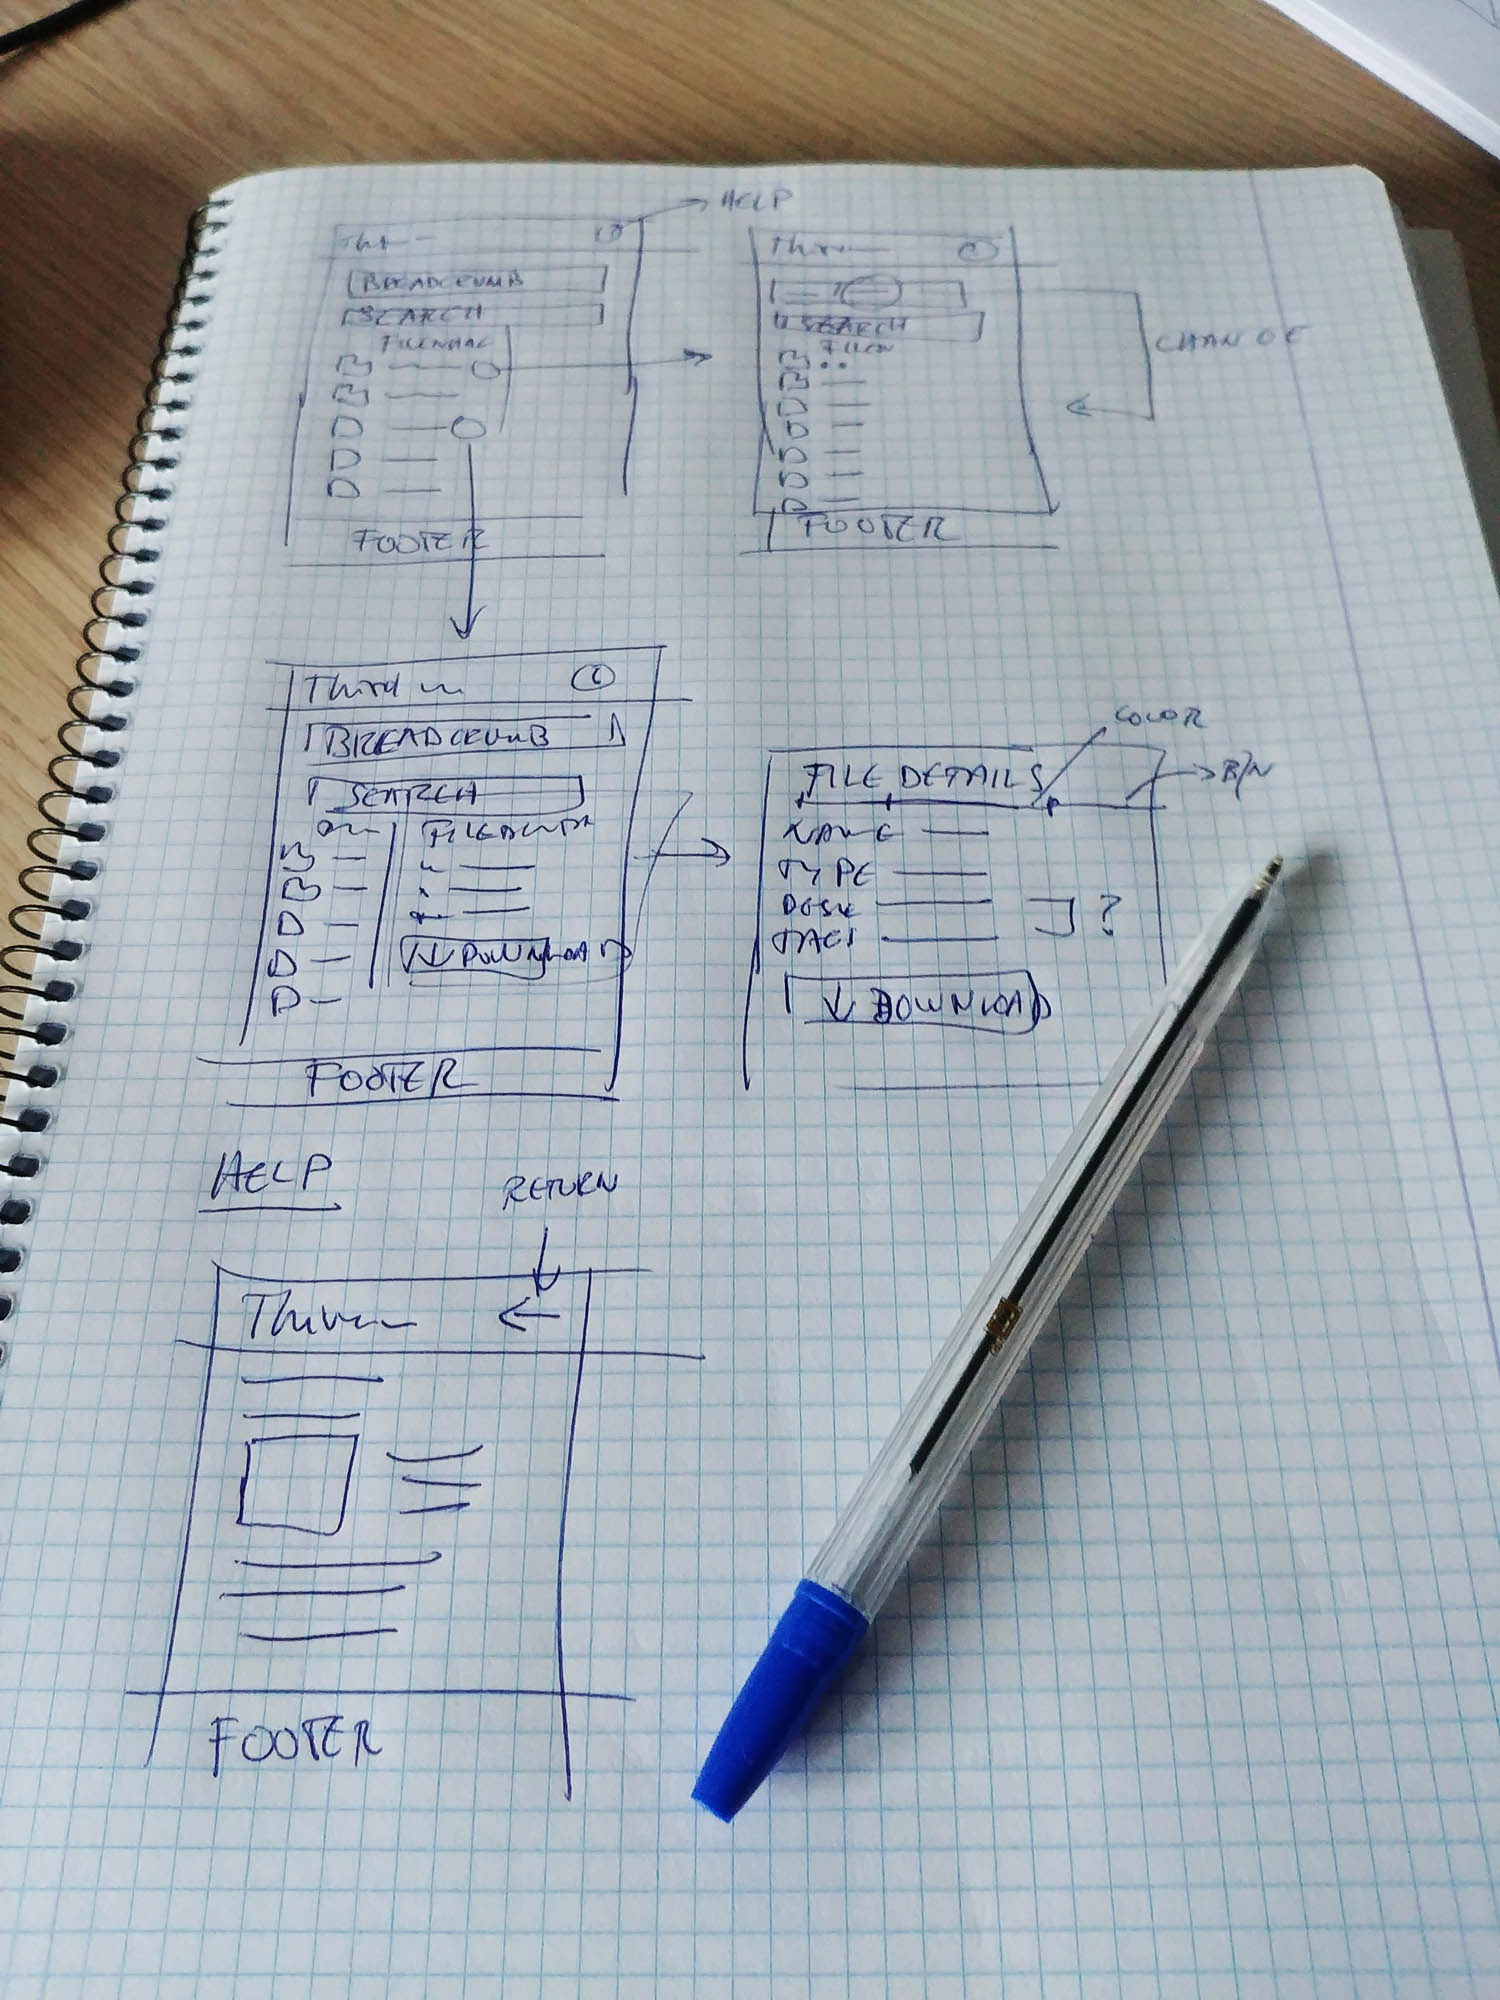 HELP
BREADCRUMB
SEARCH
FILENAME
FOOTER
SEARCH
FILEN
CHANGE
FOOTER
BREADCRUMB
SEARCH
↓ DOWNLOAD
FOOTER
COLOR
FILE DETAILS
B/N
NAME
TYPE
?
↓ DOWNLOAD
HELP
RETURN
FOOTER